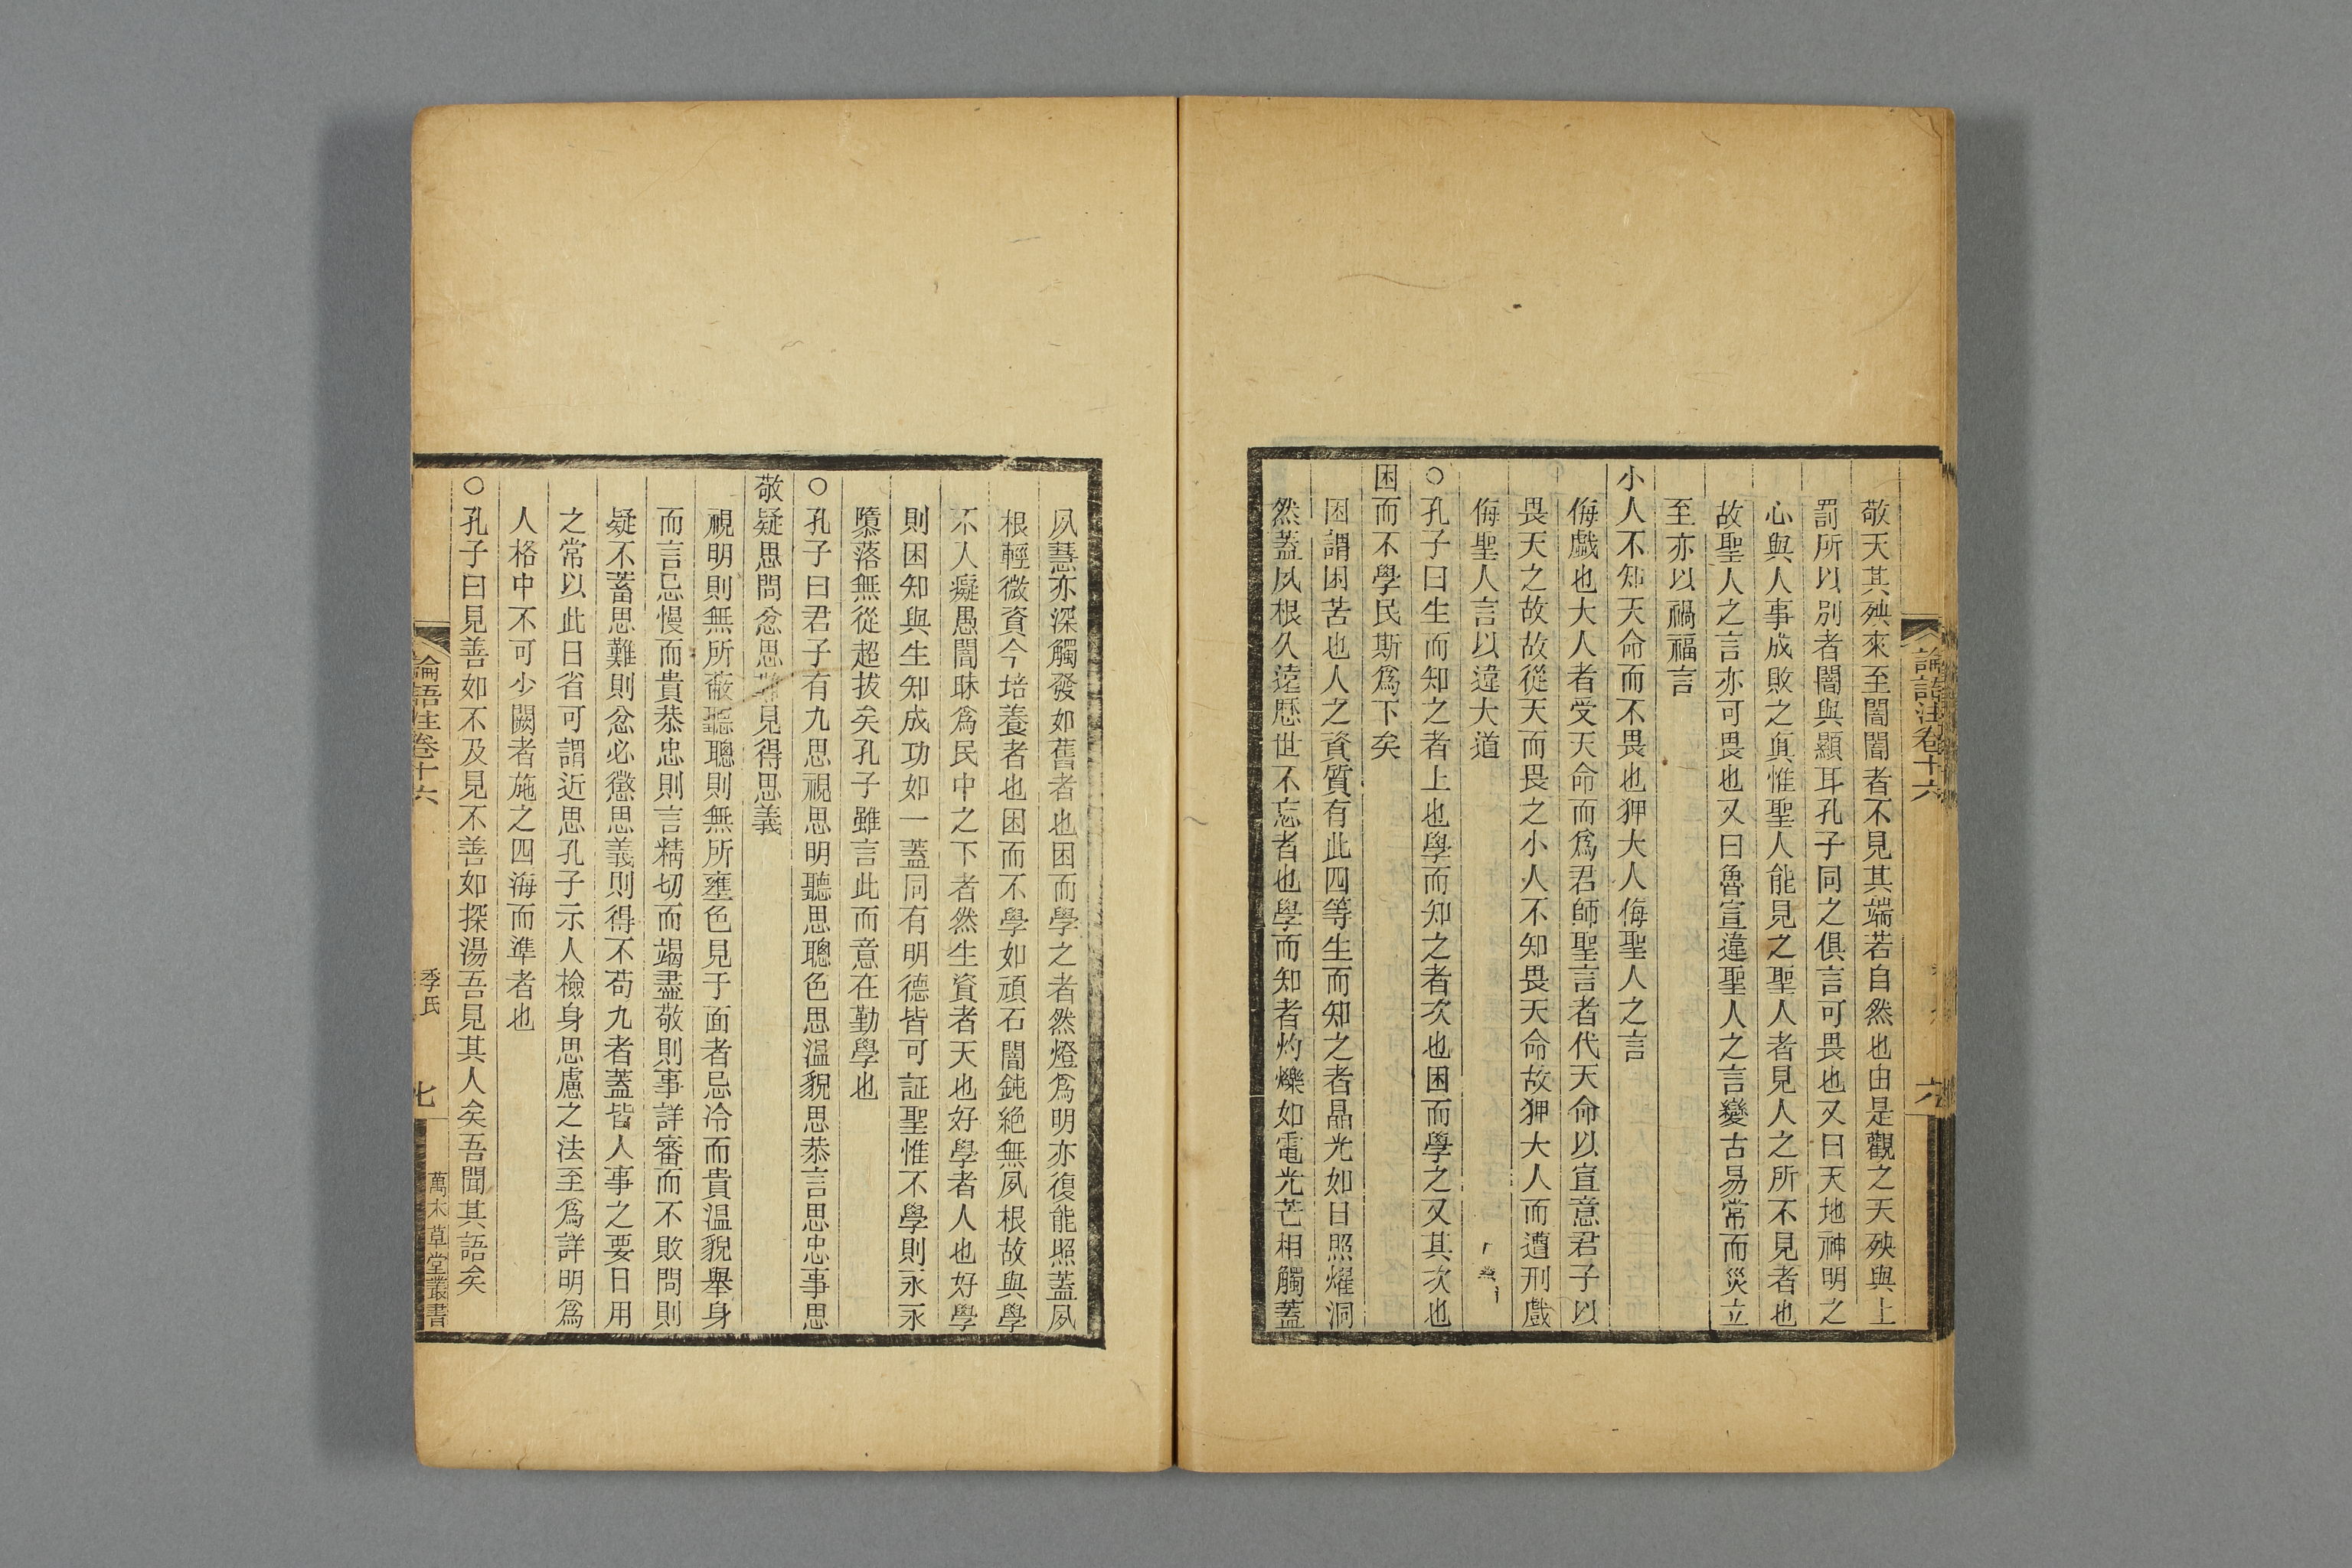 論語注卷十六
六
敬天其殃來至闇闇者不見其端若自然也由是觀之天殃與上
罰所以別者闇與顯耳孔子同之俱言可畏也又曰天地神明之
心與人事成敗之眞惟聖人能見之聖人者見人之所不見者也
故聖人之言亦可畏也又曰魯宣違聖人之言變古易常而災立
至亦以禍福言
小人不知天命而不畏也狎大人侮聖人之言
侮戲也大人者受天命而爲君師聖言者代天命以宣意君子以
畏天之故故從天而畏之小人不知畏天命故狎大人而遭刑戲
侮聖人言以違大道
○孔子曰生而知之者上也學而知之者次也困而學之又其次也
困而不學民斯爲下矣
困謂困苦也人之資質有此四等生而知之者晶光如日照燿洞
然蓋夙根久遠歷世不忘者也學而知者灼爍如電光芒相觸蓋
夙慧亦深觸發如舊者也困而學之者然燈爲明亦復能照蓋夙
根輕微資今培養者也困而不學如頑石闇鈍絕無夙根故與學
不入癡愚闇昧爲民中之下者然生資者天也好學者人也好學
則困知與生知成功如一蓋同有明德皆可証聖惟不學則永永
隳落無從超拔矣孔子雖言此而意在勤學也
○孔子曰君子有九思視思明聽思聰色思温貌思恭言思忠事思
敬疑思問忿思難見得思義
視明則無所蔽聽聰則無所壅色見于面者忌冷而貴温貌舉身
而言忌慢而貴恭忠則言精切而竭盡敬則事詳審而不敗問則
疑不蓄思難則忿必懲思義則得不苟九者蓋皆人事之要日用
之常以此日省可謂近思孔子示人檢身思慮之法至爲詳明爲
人格中不可少闕者施之四海而準者也
○孔子曰見善如不及見不善如探湯吾見其人矣吾聞其語矣
論語注卷十六
季氏
七
萬木草堂叢書